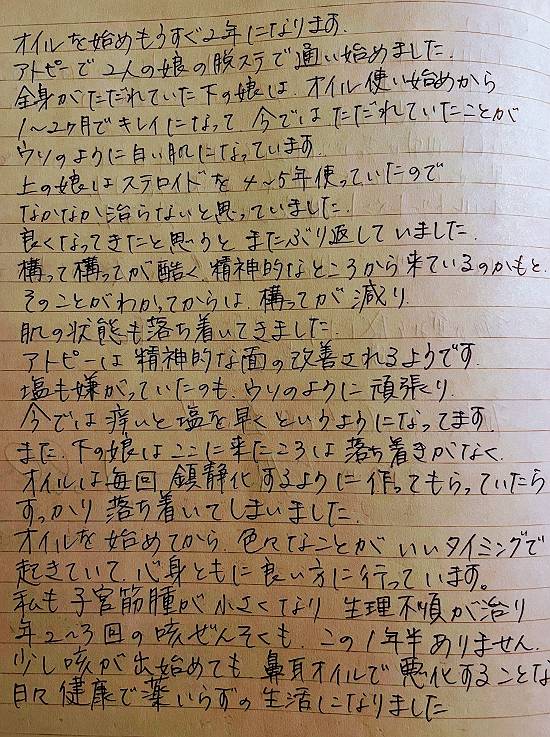 オイルを始めもうすぐ2年になります.
アトピーで2人の娘の脱ステで通い始めました.
全身がただれていた下の娘は、オイル使い始めから
1〜2ヶ月でキレイになって 今では ただれていたことが
ウソのように白い肌になっています.
上の娘はステロイドを4〜5年使っていたので
なかなか治らないと思っていました.
良くなってきたと思うと またぶり返していました.
構って構ってが酷く、精神的なところから来ているのかもと.
そのことがわかってからは、構ってが減り.
肌の状態も落ち着いてきました.
アトピーは精神的な面の改善されるようです.
塩も嫌がっていたのも、ウソのように頑張り.
今では痒いと塩を早くというようになってます.
また、下の娘はここに来たころは落ち着きがなく、
オイルは毎回 鎮静化するように作ってもらっていたら
すっかり落ち着いてしまいました.
オイルを始めてから、色々なことが いいタイミングで
起きていて、心身ともに良い方に行っています。
私も 子宮筋腫が小さくなり 生理不順が治り
年2〜3回の咳ぜんそくも、この1年半ありません.
少し咳が出始めても 鼻耳オイルで悪化することな
日々健康で薬いらずの生活になりました